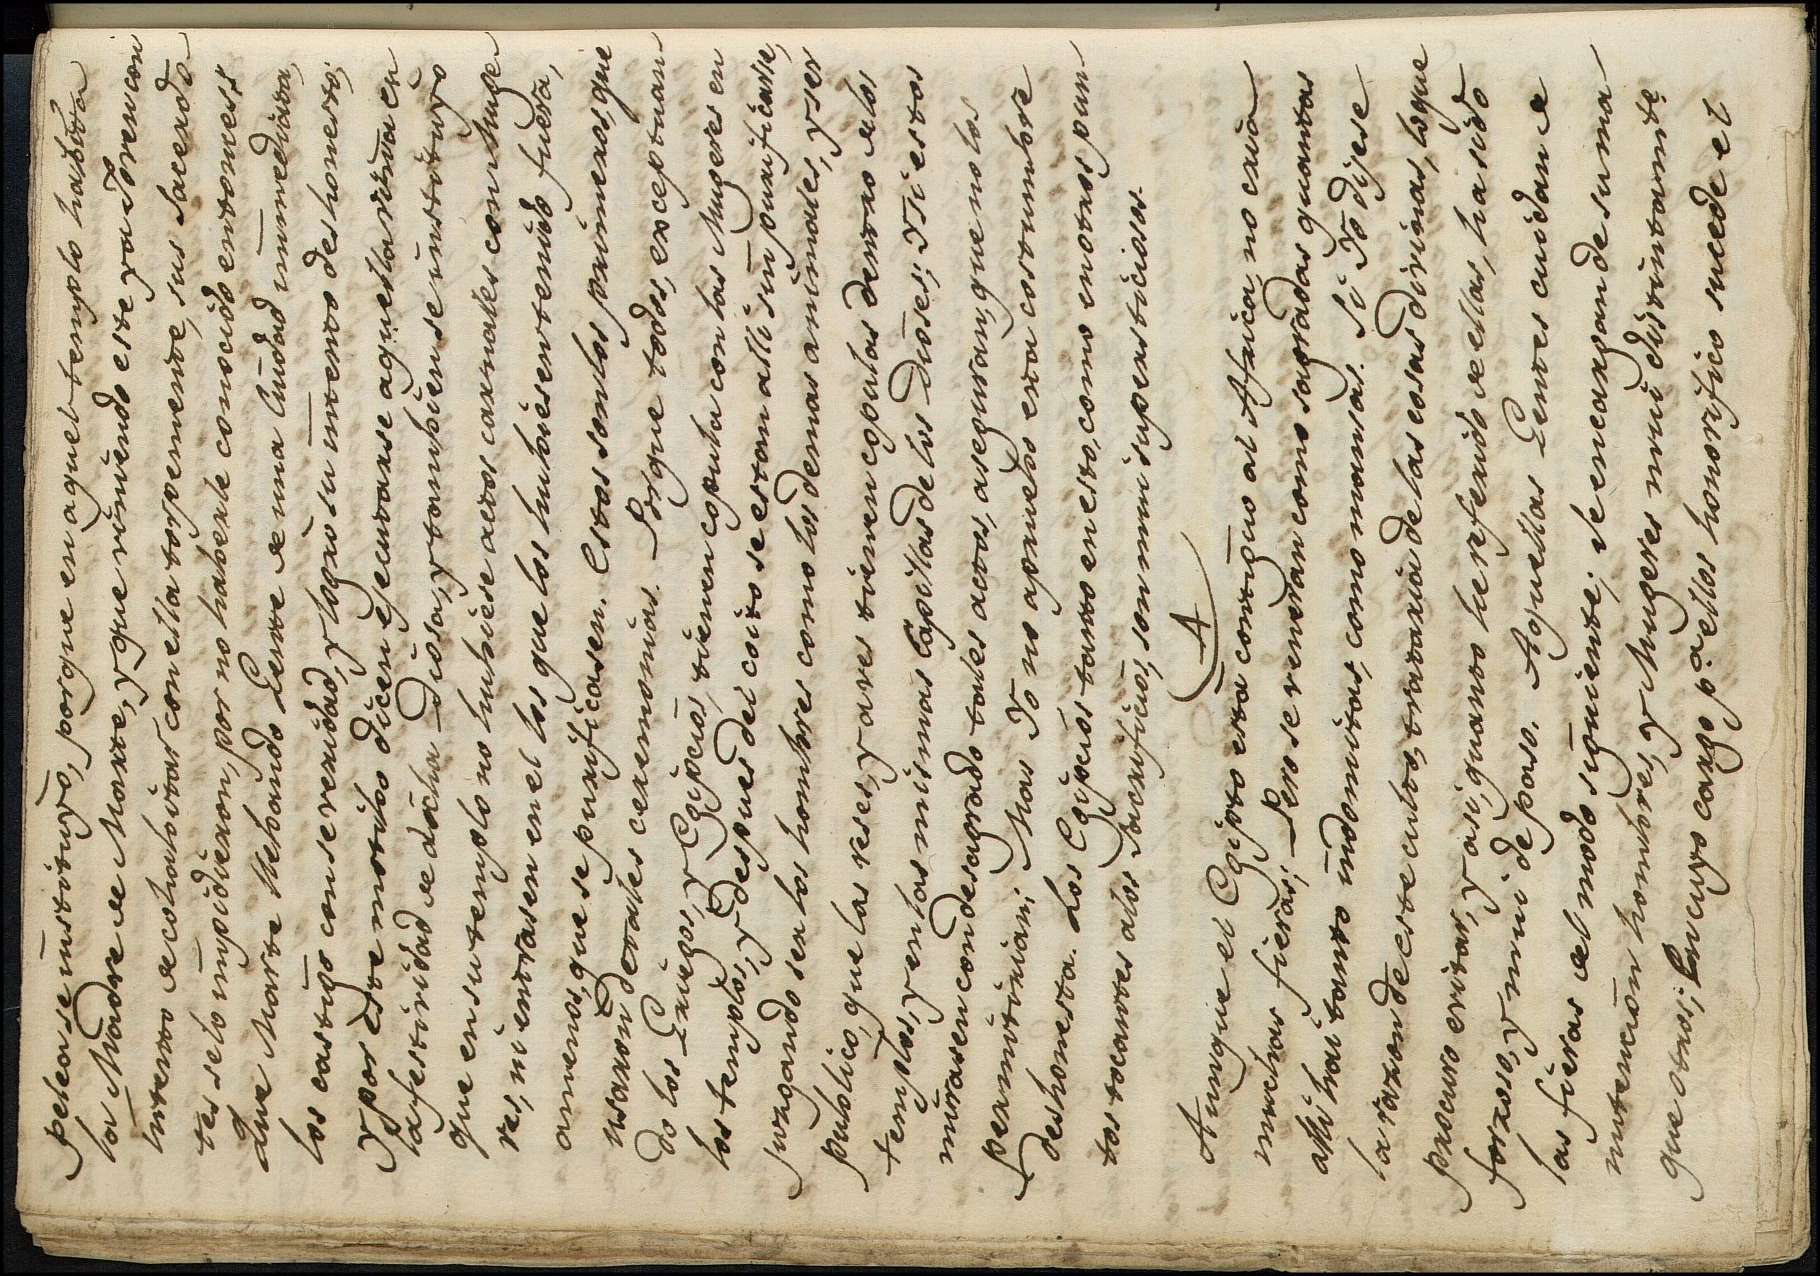 pelea se instituyò, porque en aquel templo habita
la Madre de Marte, y que viniendo este ya Joven con
intento de cohabitar con ella torpemente, sus Sacerdo
tes se lo impidieron, por no haberle conocido entonces
Que Marte llebando Gente de una Ciudad inmediata,
los castigò con severidad, y logrò su intento deshonesto;
y por este motibo dicen ejecutarse aquesta riña en
la festividad de dicha Diosa, y tambien se instituyò
que en su templo no hubiese actos carnales con Muge
res, ni entrasen en el los que los hubiesen tenido fuera,
a menos, que se purificasen. Estos son los primeros, que
usaron de tales ceremonias. Porque todos, exceptuan
do los Griegos, y Egipcios, tienen copula con las Mugeres en
los templos, y despues del coito se estan alli sin purificarse,
juzgando ser los hombres como los demas animales, y ser
publico, que las reses, y aves tienen copulas dentro de los
templos, y en las mismas Capillas de los Dioses; y si estos
mirasen con desagrado tales actos, aseguran, que no los
permitirian; Mas Yo no apruebo esta costumbre
deshonesta. Los Egipcios tanto en esto, como en otros pun
tos tocantes a los Sacrificios, son mui supersticiosos.
4
Aunque el Egipto esta contiguo al Africa, no cria
muchas fieras; Pero se veneran como sagradas quantas
alli hai tanto indomitas, como mansas. Si Yo dijese
la razon de este culto, trataria de las cosas divinas, lo que
procuro evitar, y asi, quanto he referido de ellas, ha sido
forzoso, y mui de paso. Aquellas Gentes cuidan de
las fieras del modo siguiente; Se encargan de su ma
nutencion hombres, y Mugeres mui distintamte.
que otros; En cuyo cargo pa. ellos honorifico sucede el